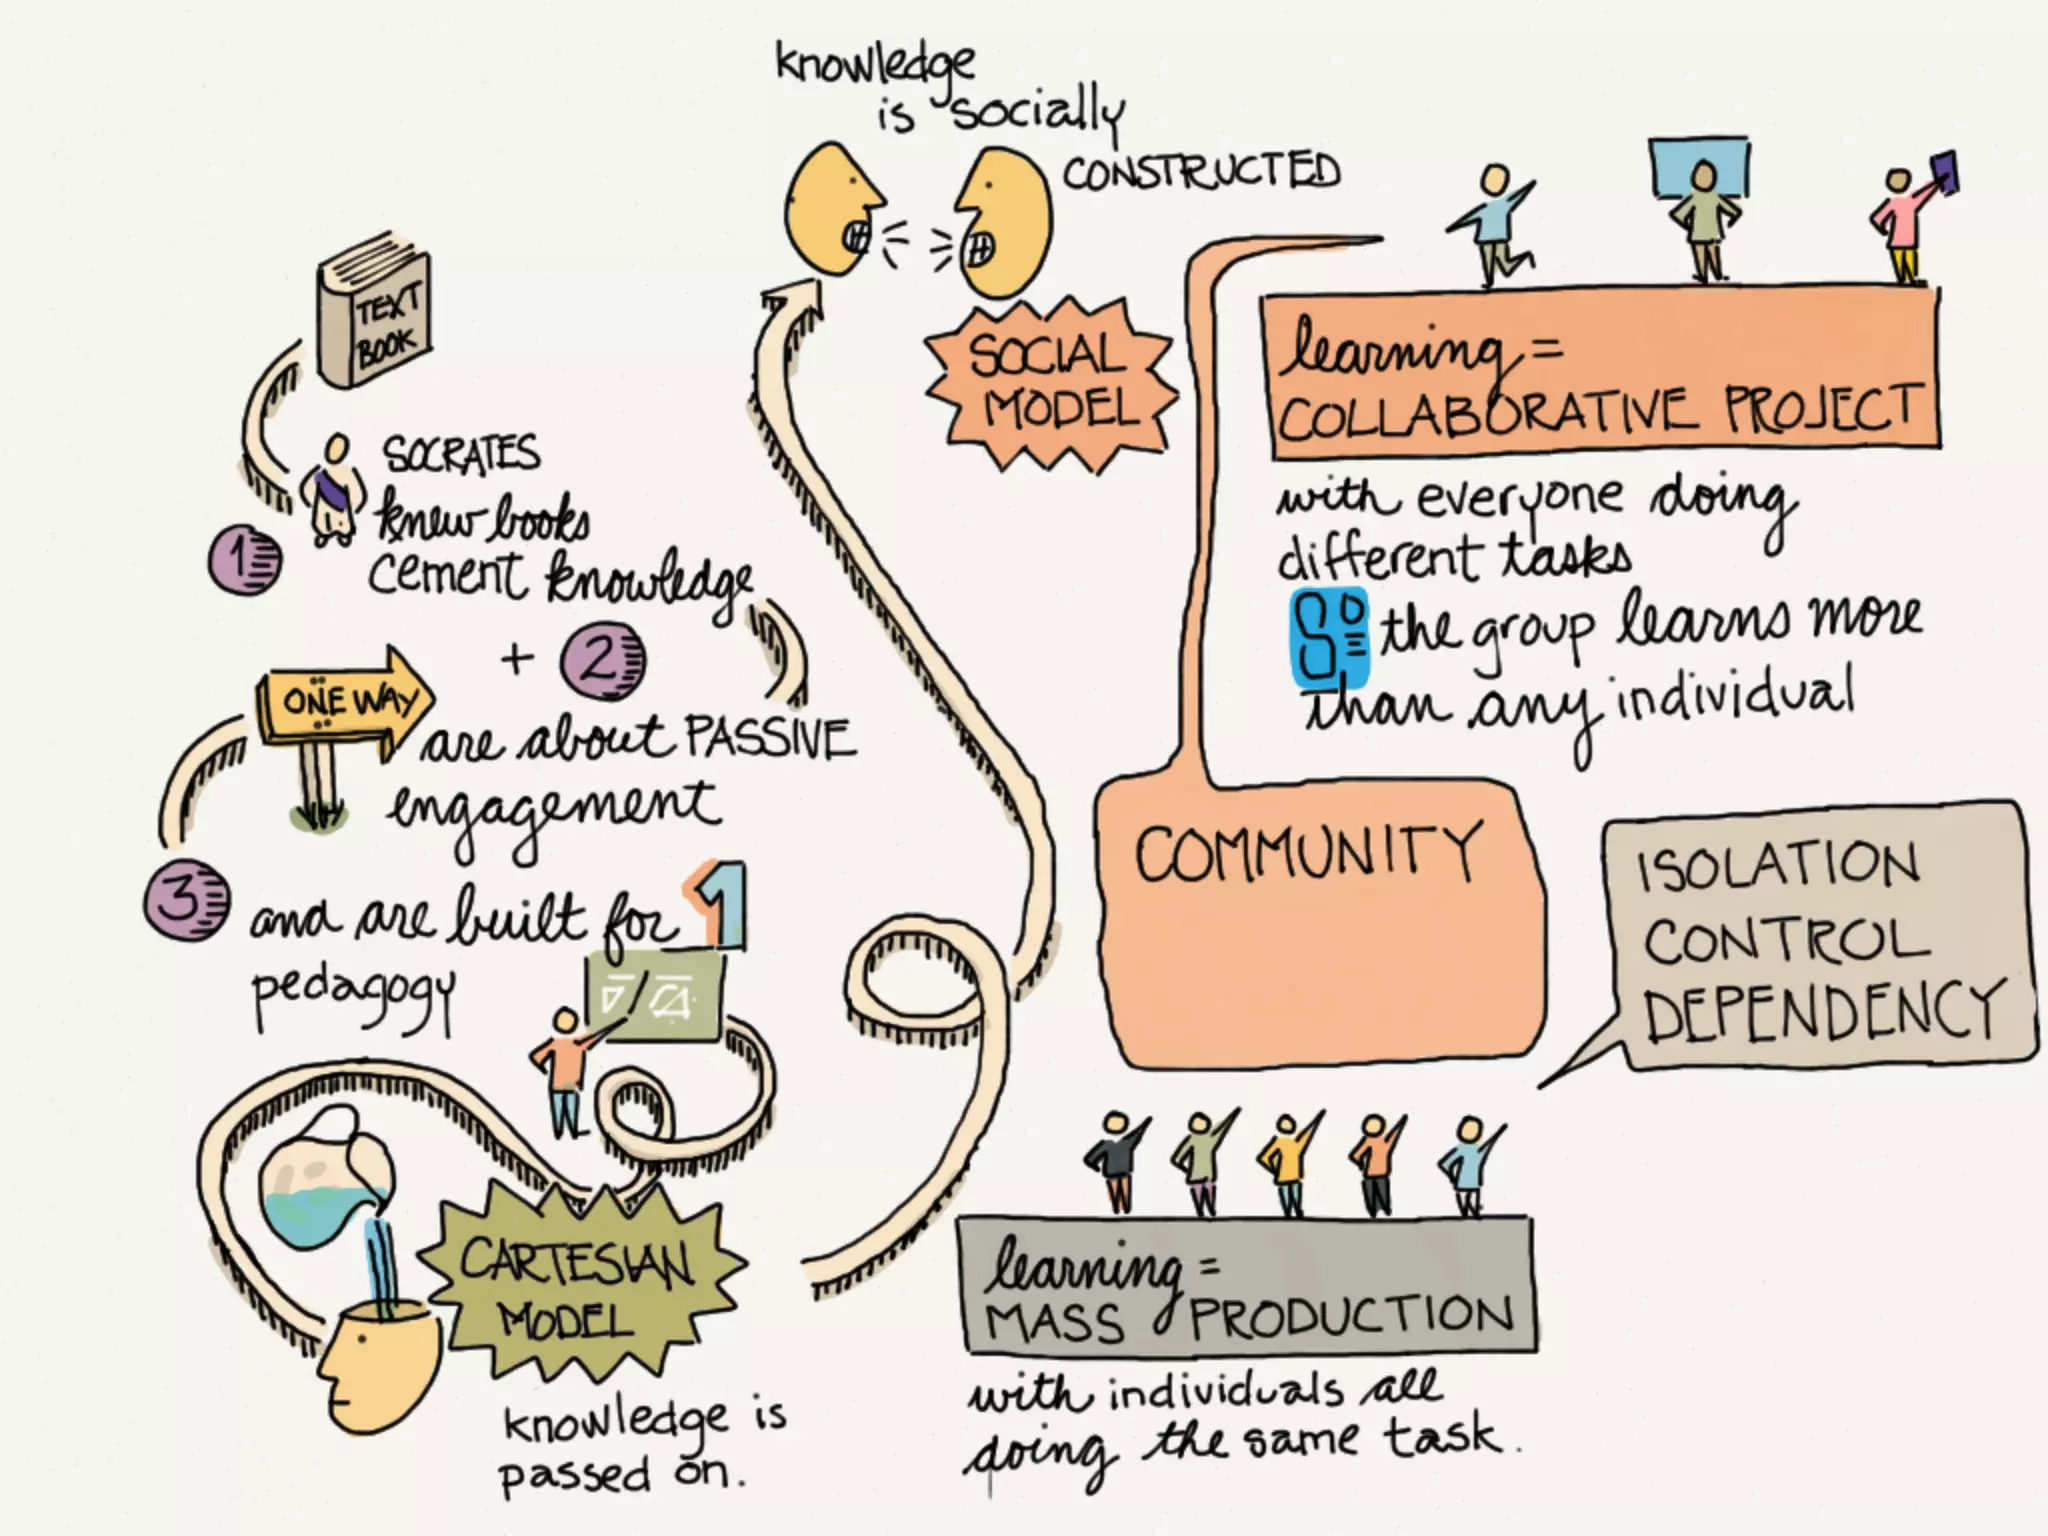 TEXT
BOOK
1
SOCRATES
knew books
cement knowledge
+ 2
ONE WAY
are about PASSIVE
engagement
3 and are built for 1
pedagogy
CARTESIAN
MODEL
knowledge is
passed on.
knowledge
is socially
CONSTRUCTED
SOCIAL
MODEL
learning =
COLLABORATIVE PROJECT
with everyone doing
different tasks
So the group learns more
than any individual
COMMUNITY
ISOLATION
CONTROL
DEPENDENCY
learning =
MASS PRODUCTION
with individuals all
doing the same task.